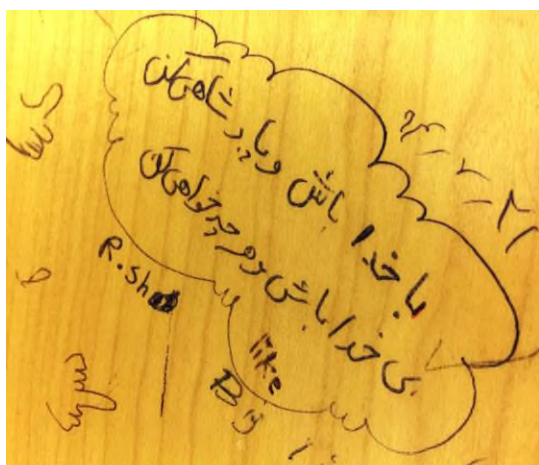 با خدا باش و پادشاهی کن
بی خدا باش و هر چه خواهی کن
R.sh
like
By